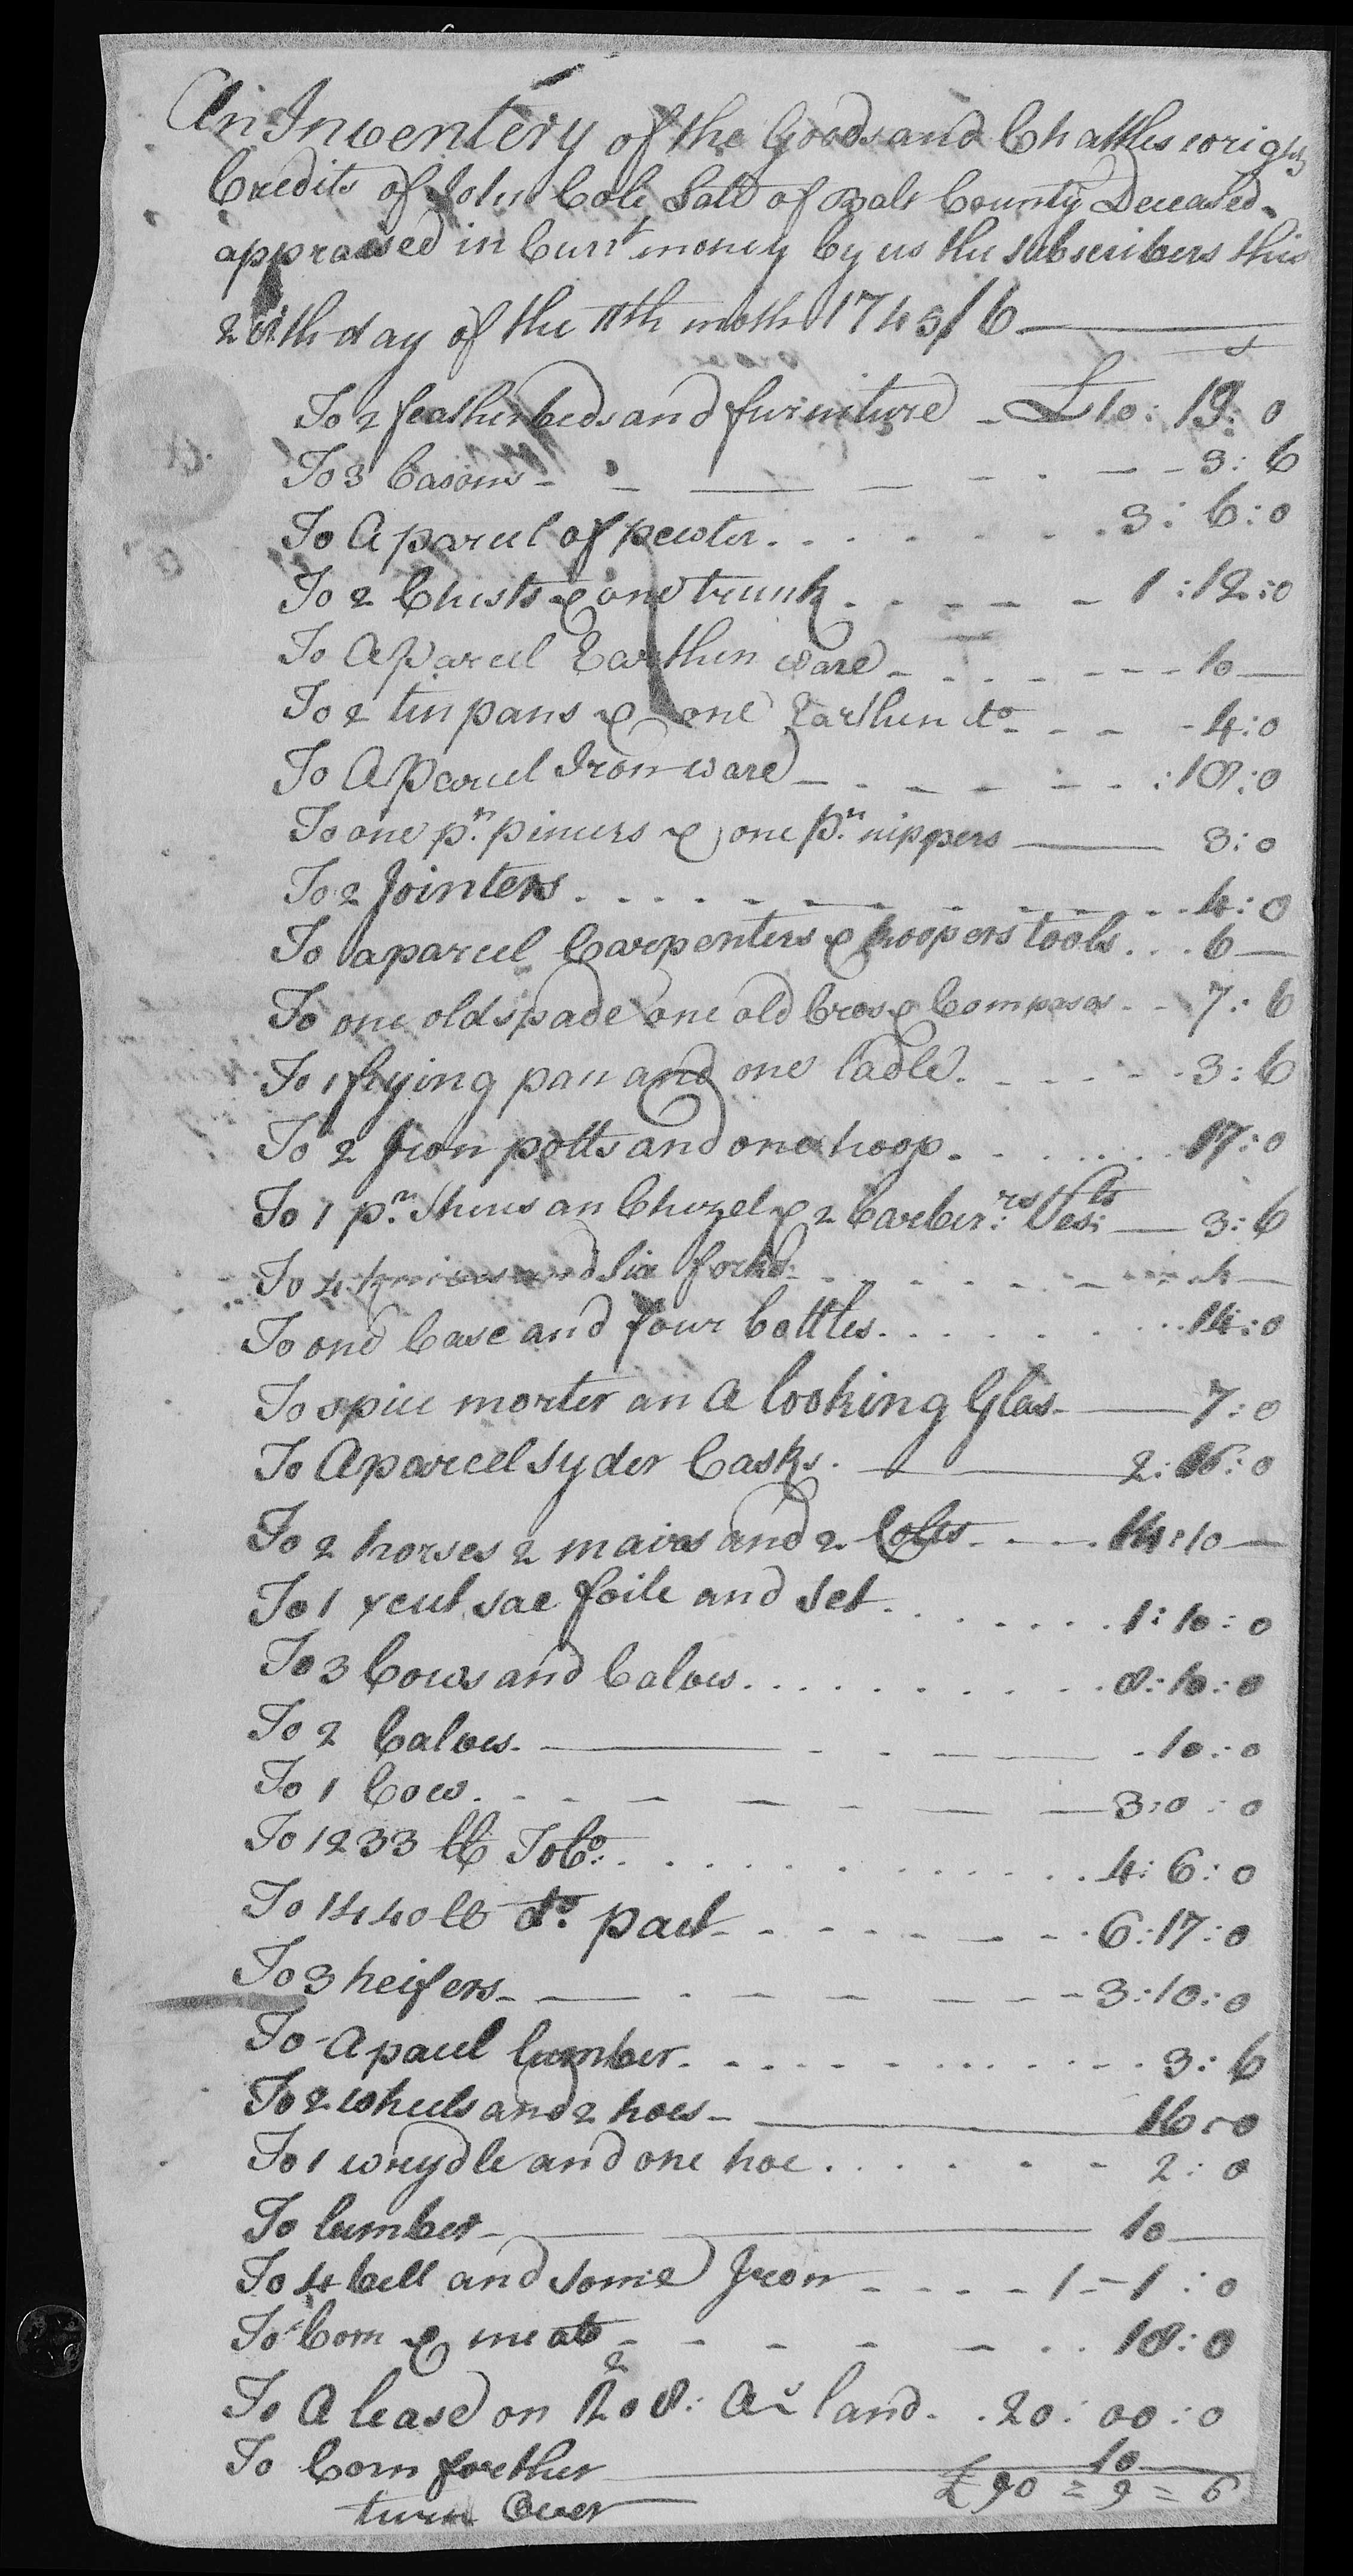 An Inventery of the Goods and Chattles wrights
Credits of John Cole Late of Balt County Deceased
appraised in Currt money by us the subscribers this
day of the 11th moth 1745/6
To 2 feather beds and furniture - £10: 19: 0
To 3 basons - 3: 6
To A parcel of pewter 3: 6: 0
To 2 Chists & one trunk 1: 12: 0
To A Parcel Earthen ware 10
To 2 tin pans & one Earthen do 4: 0
To A Parcel Iron ware 18: 0
To one pr pincers & one pr nippers 3: 0
To 2 Jointers 4: 0
To a parcel Carpenters & hoopers tools 6
To one old spade one old Cros & Compases 7: 6
To 1 frying pan and one ladle 3: 6
To 2 Iron potts and one hoop 17: 0
To 1 pr Shers an Chezel & 2 barber:rs 3: 6
To 4 knives and Six forks 4
To one Case and four bottles 14: 0
To spice morter an A looking Glas 7: 0
To A parcel Syder Casks 2: 16: 0
To 2 horses 2 mairs and 2 Colts 14: 10
To 1 xcut sae foile and Set 1: 10: 0
To 3 Cows and Calves 8: 10: 0
To 2 Calves 10: 0
To 1 Cow 3: 0: 0
To 1233 lb Tobo: 4: 6: 0
To 1440 lb do. pact 6: 17: 0
To 3 heifers 3: 10: 0
To A pacel lumber 3: 6
To 2 wheels and 2 hoes 16 - 0
To 1 wrydle and one hoe 2: 0
To lumber 10
To 4 bell and some Iron 1 - 1: 0
To Corn & meat 18: 0
To A lease on 208: Ac land 20: 00: 0
To Corn forther 10
turn Over £90 = 9 = 6